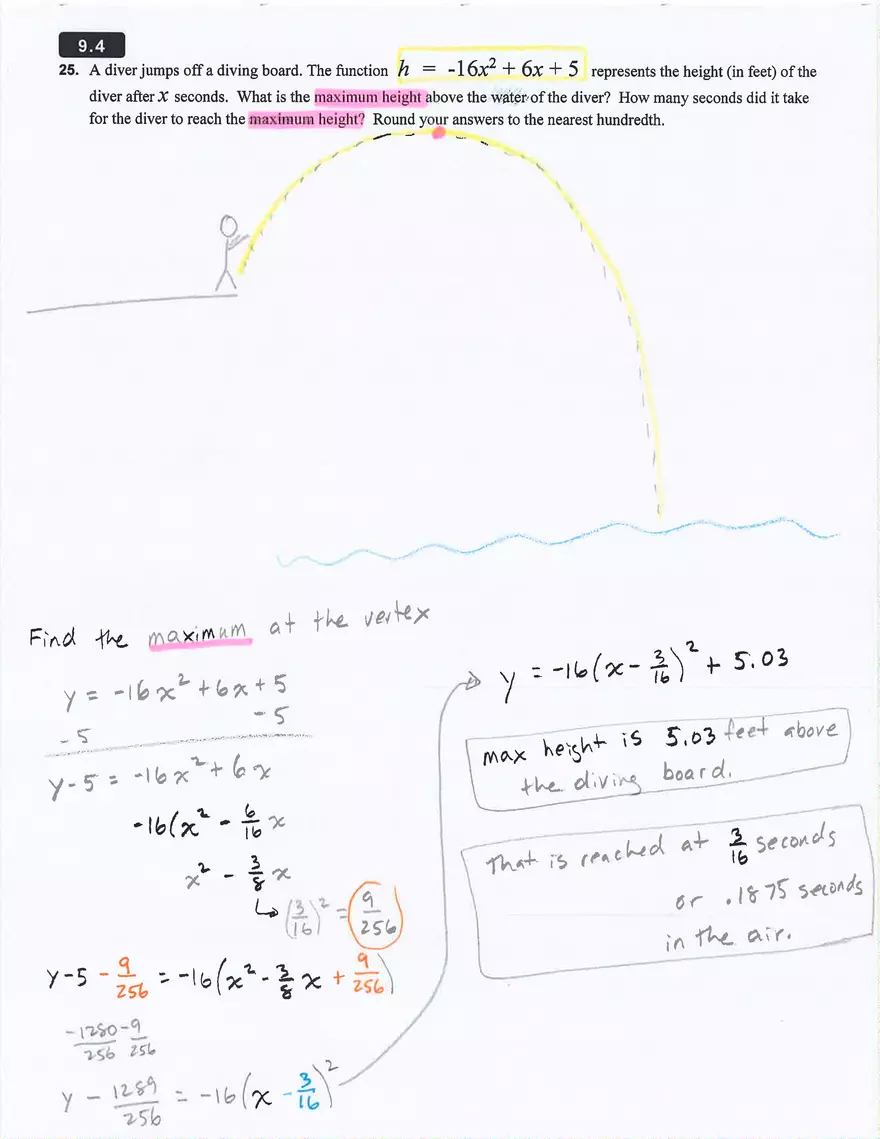 9.4
25. A diver jumps off a diving board. The function h = -16x² + 6x + 5 represents the height (in feet) of the
diver after x seconds. What is the maximum height above the water of the diver? How many seconds did it take
for the diver to reach the maximum height? Round your answers to the nearest hundredth.
Find the maximum at the vertex
y = -16x² + 6x + 5
-5 -5
y-5 = -16x² + 6x
-16(x² - 6/16 x
x² - 3/8 x
↳ (3/16)² = 9/256
y-5 - 9/256 = -16(x² - 3/8 x + 9/256)
-1280/256 - 9/256
y - 1289/256 = -16(x - 3/16)²
y = -16(x - 3/16)² + 5.03
max height is 5.03 feet above
the diving board.
That is reached at 3/16 seconds
or .1875 seconds
in the air.